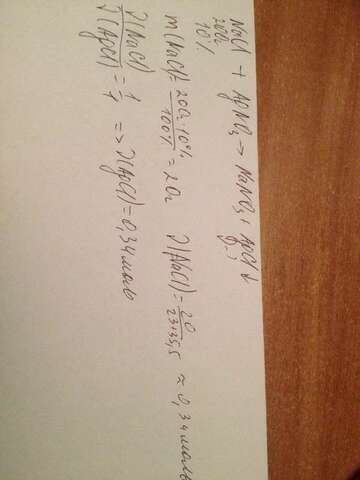 NaCl + AgNO₃ → NaNO₃ + AgCl↓
200г
10% ν-?
m(NaCl) = 200г·10%/100% = 20г ν(NaCl) = 20/23+35,5 ≈ 0,34 моль
ν(NaCl)/ν(AgCl) = 1/1 => ν(AgCl) = 0,34 моль